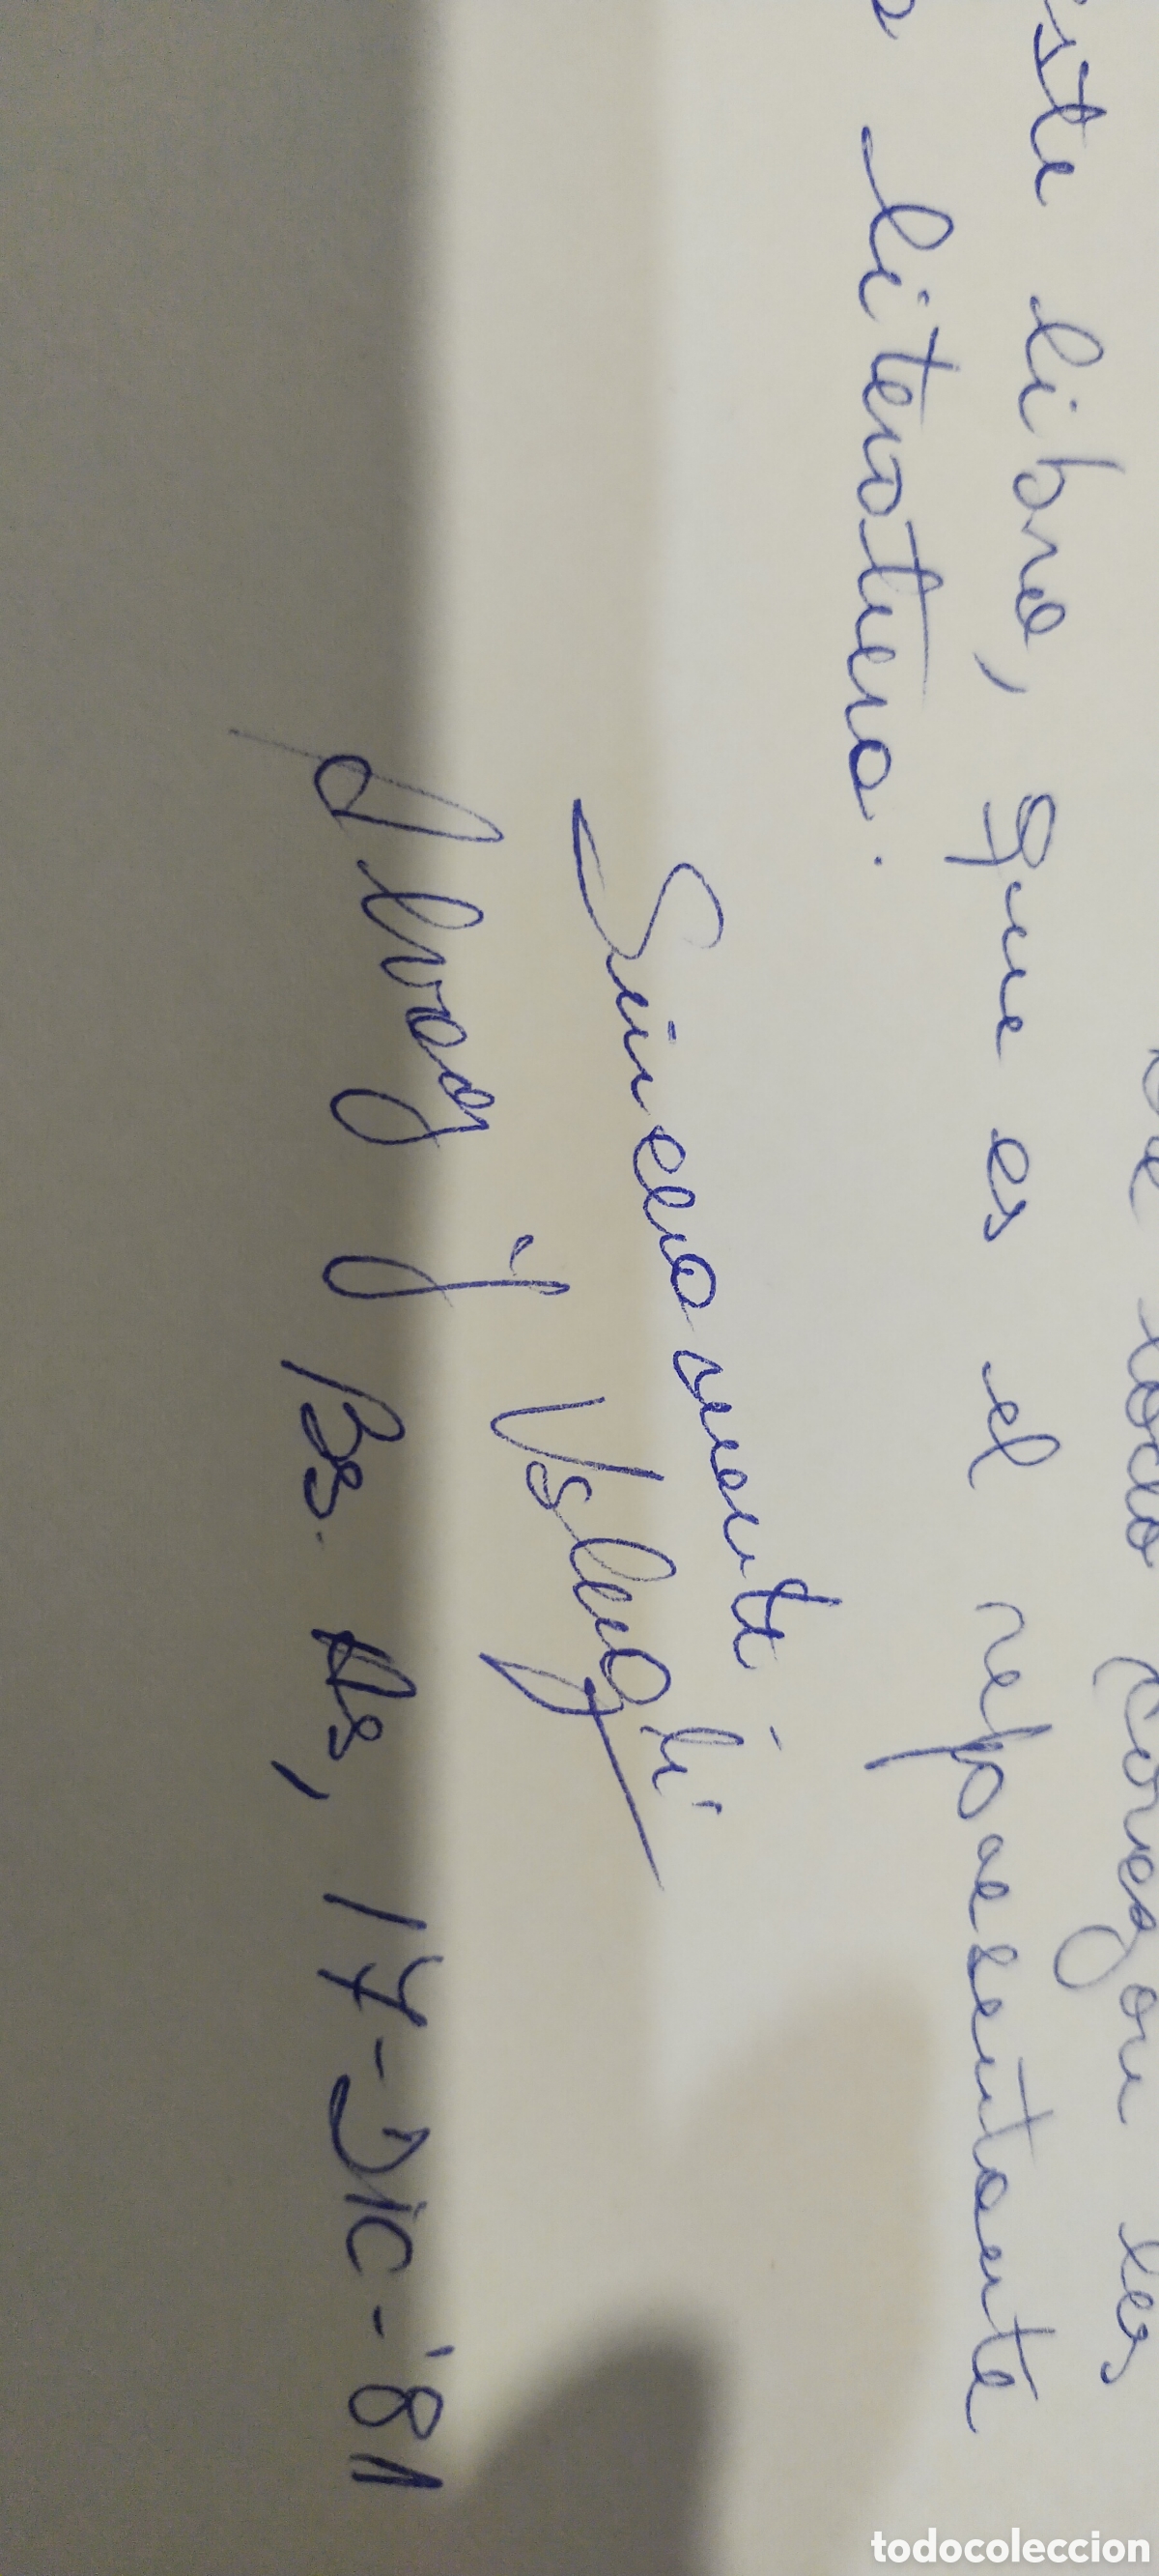 de todo corazón les
este libro, que es el representante
literatura.
Sinceramente
Alvag y
Bs. As, 17-DIC-'81
todocoleccion